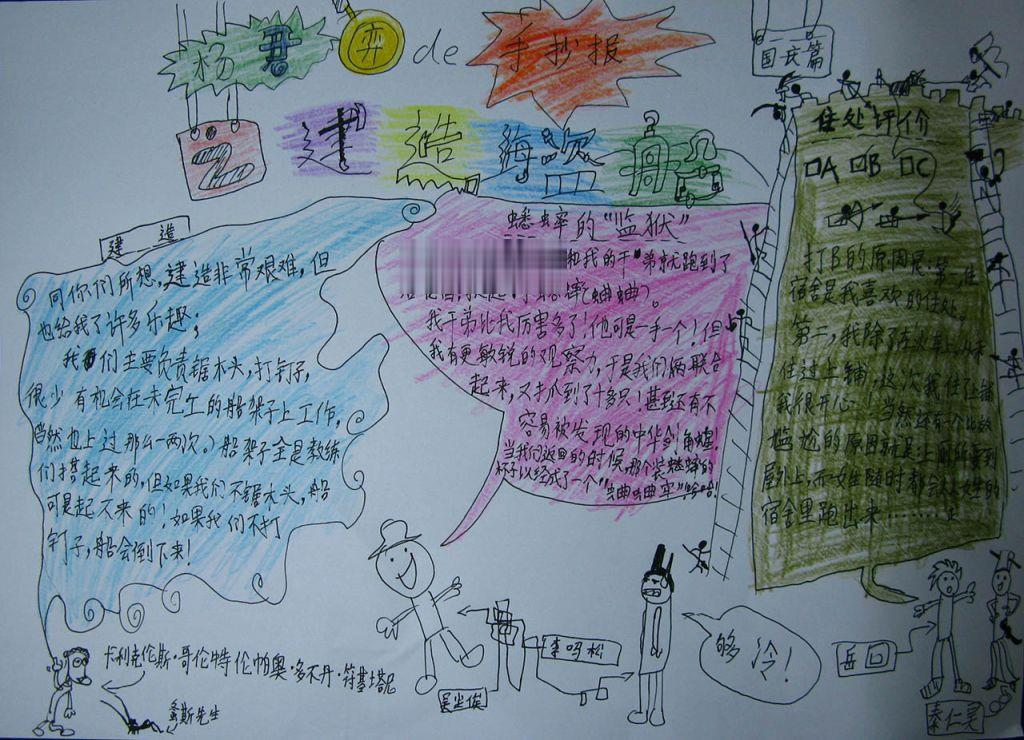 杨 君 弈 de 手抄报
国民篇
2
建造海盗船
建 造
同你们所想,建造非常艰难,但
也给我了许多乐趣;
我们主要负责锯木头,打钉子,
很少有机会在未完工的船架子上工作,
(当然也上过那么一两次。)船架子全是教练
们搭起来的,但如果我们不锯木头,船
可是起不来的!如果我们不打
钉子,船会倒下来!
蟋蟀的“监狱”
和我的干弟就跑到了
(蛐蛐)。
我干弟比我厉害多了!他可是一手一个!但
我有更敏锐的观察力,于是我们俩联合
起来,又抓到了十多只!甚至还有不
容易被发现的中华剑角蝗!
当我们返回的时候,那个装蟋蟀的
杯子以经成了一个“蛐蛐牢”哈哈!
住处评价
A B C
打B的原因是:第一,住
宿舍是我喜欢的住处。
第二,我除了在火车上从未
住过上铺,这次我住上铺
我很开心!当然还有一个比较
尴尬的原因就是:上厕所要到
屋外上,而女生随时都会从女生的
宿舍里跑出来
卡利克伦斯·哥伦特伦帕奥·多不丹·符基塔尼
李鸣松
够冷!
岳回
秦仁昊